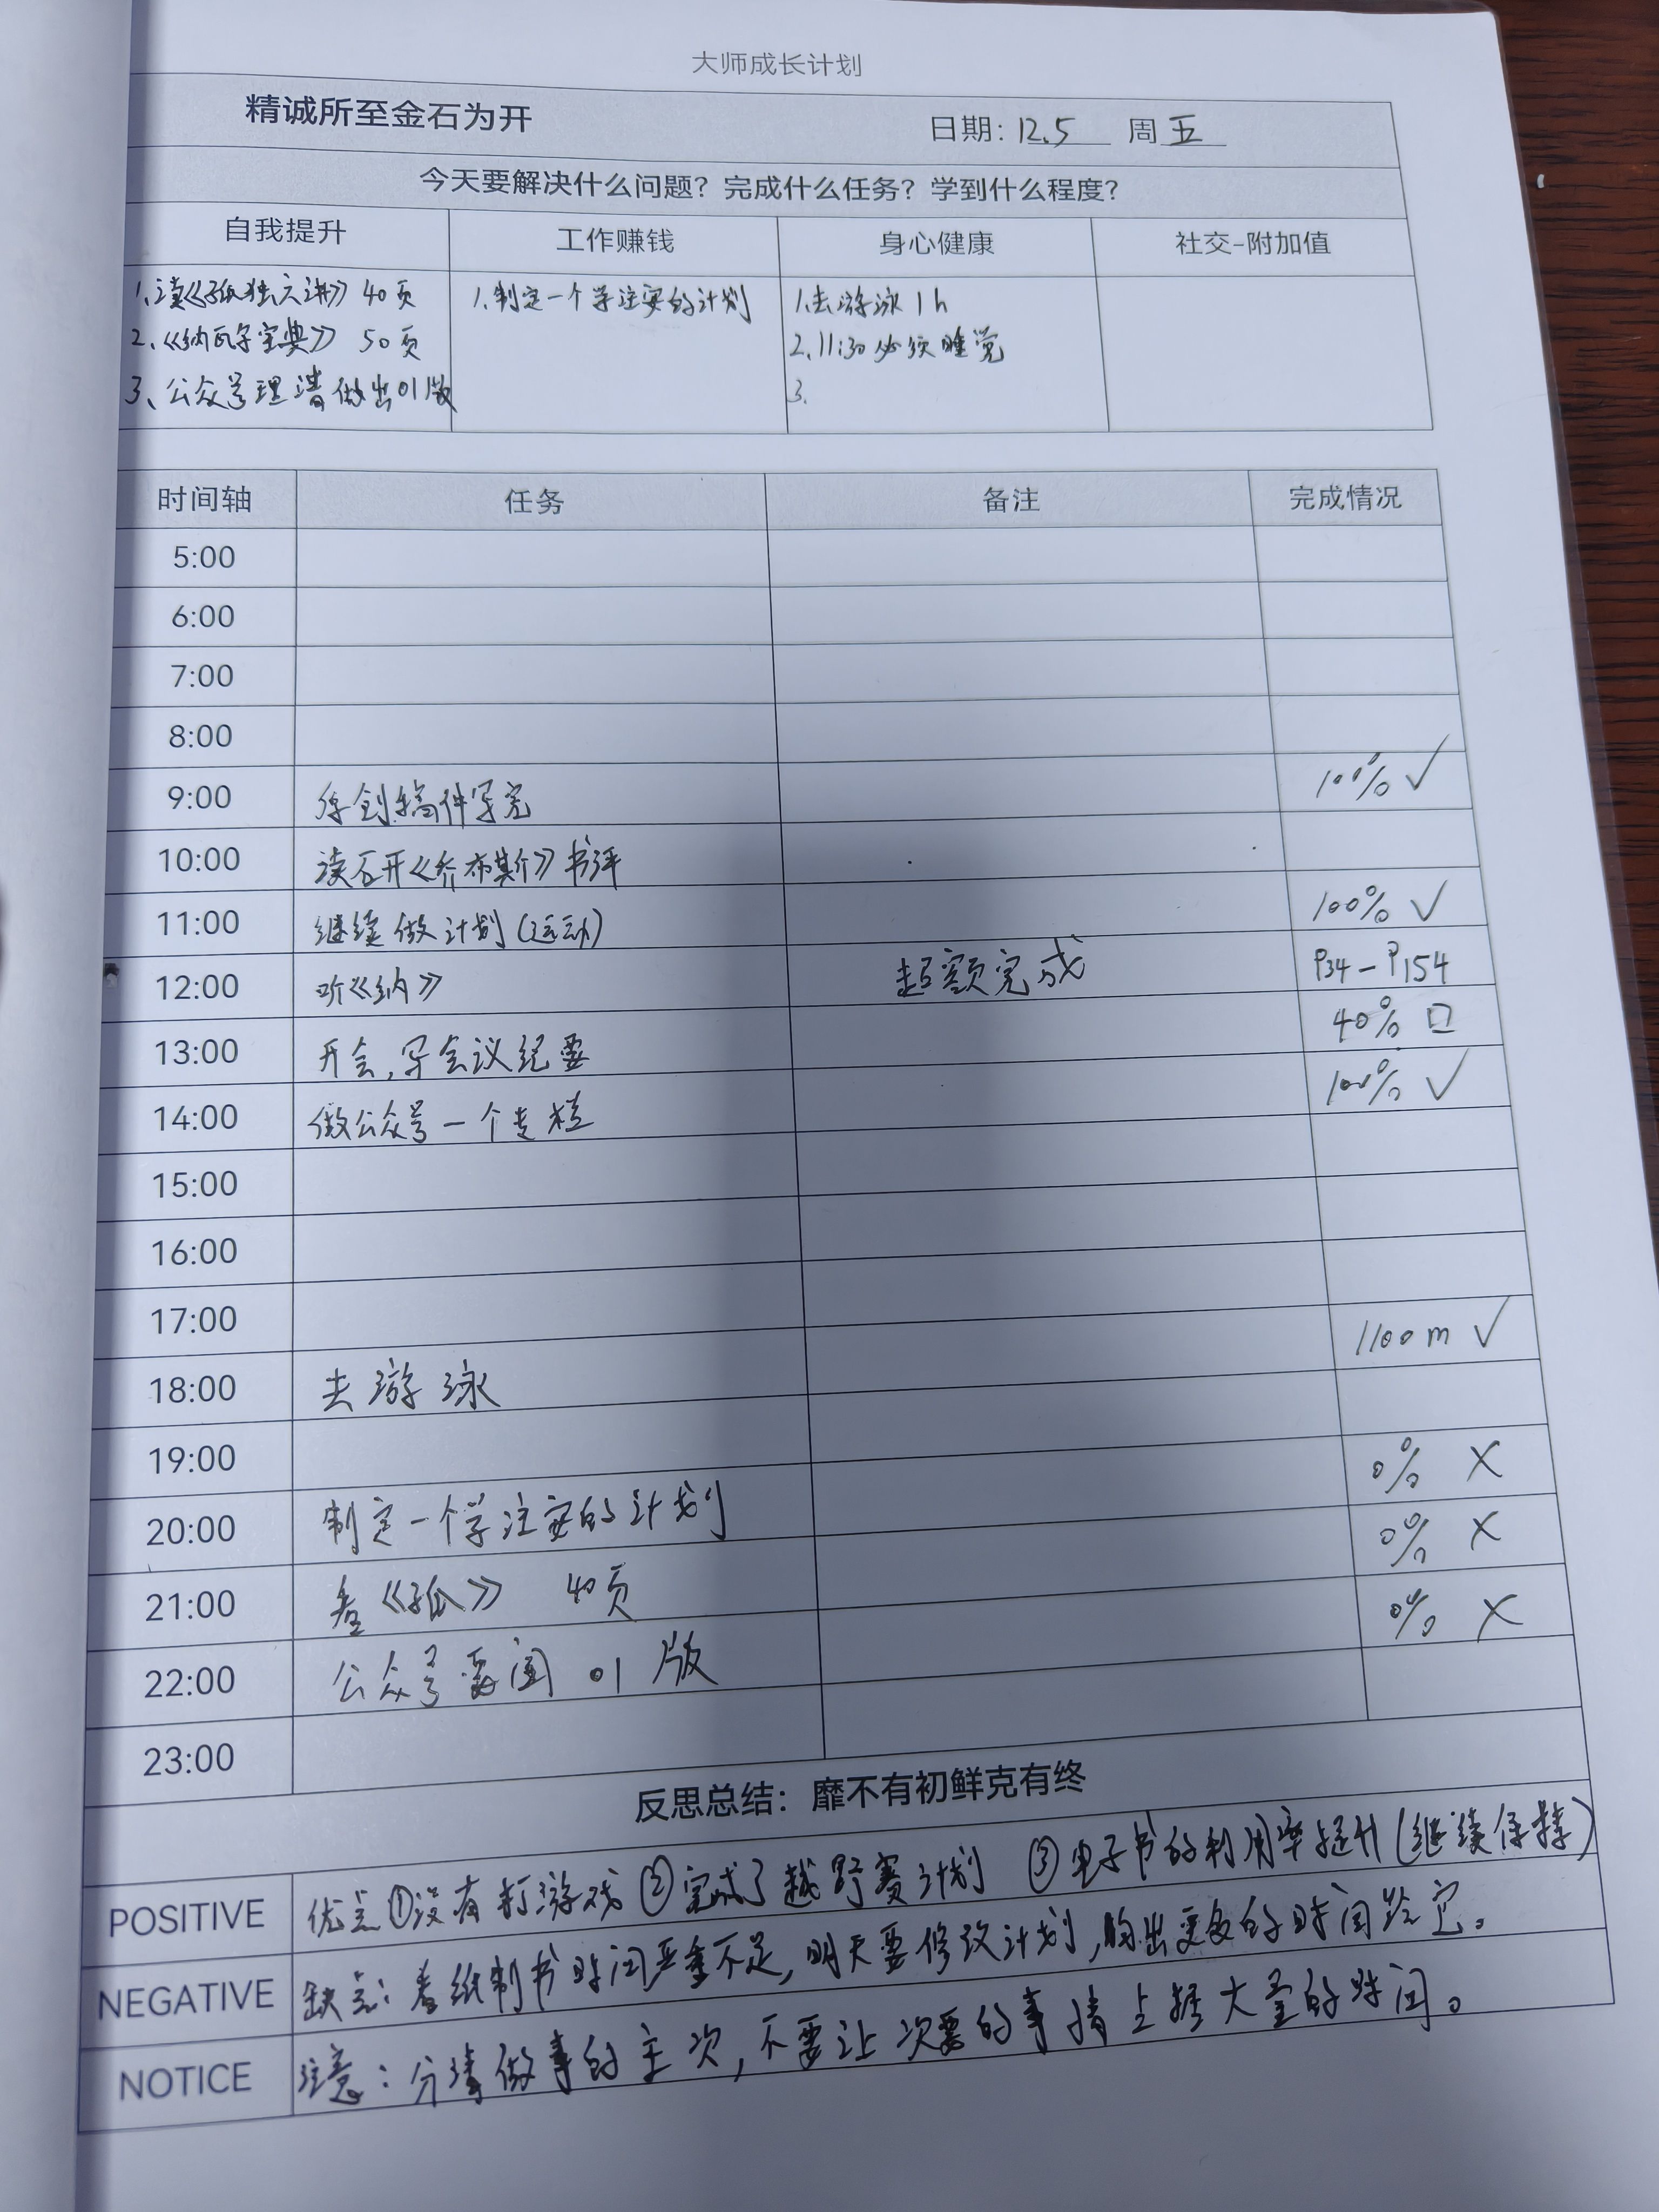 大师成长计划
精诚所至金石为开 日期: 12.5 周五
今天要解决什么问题？完成什么任务？学到什么程度？
自我提升 工作赚钱 身心健康 社交-附加值
1、读《孤独六讲》 40页 1.制定一个学注安的计划 1.去游泳 1h
2、《纳瓦尔宝典》 50页 2.11:30必须睡觉
3、公众号理清做出01版 3.
时间轴 任务 备注 完成情况
5:00
6:00
7:00
8:00
9:00 原创稿件写完 100% ✓
10:00 读石开《乔布斯》书评
11:00 继续做计划(运动) 100% ✓
12:00 听《纳》 超额完成 P34-P154
13:00 开会,写会议纪要 40% 口
14:00 做公众号一个专栏 100% ✓
15:00
16:00
17:00
18:00 去游泳 1100m ✓
19:00
20:00 制定一个学注安的计划 0% ×
21:00 看《孤》 40页 0% ×
22:00 公众号要闻 01版 0% ×
23:00
反思总结：靡不有初鲜克有终
POSITIVE 优点①没有打游戏 ②完成了越野赛计划 ③电子书的利用率提升(继续保持)
NEGATIVE 缺点：看纸制书时间严重不足,明天要修改计划,腾出更多的时间给它。
NOTICE 注意：分清做事的主次,不要让次要的事情占据大量的时间。